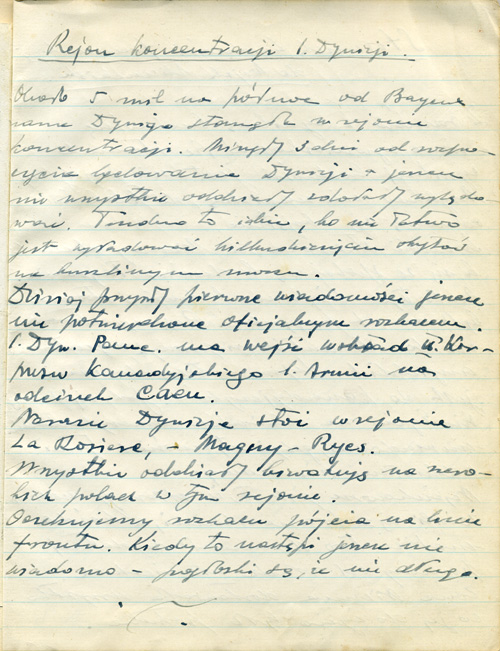 Rejon koncentracji 1. Dywizji.
Około 5 mil na północ od Bayeux
nasza Dywizja stanęła w rejonie
koncentracji. Minęły 3 dni od rozpo-
częcia lądowania Dywizji i jeszcze
nie wszystkie oddziały zdołały wylądo-
wać. Trudno to idzie, bo nie łatwo
jest wyładować kilkudziesięciu okrętów
na burzliwym morzu.
Dzisiaj przyszły pierwsze wiadomości jeszcze
nie potwierdzone oficjalnym rozkazem.
1. Dyw. Panc. ma wejść w skład II. Kor-
pusu Kanadyjskiego 1. Armii na
odcinek Caen.
Narazie Dywizja stoi w rejonie
La Rosiere, - Magny - Ryes.
Wszystkie oddziały biwakują na szero-
kich polach w tym rejonie.
Oczekujemy rozkazu pójścia na linię
frontu. Kiedy to nastąpi jeszcze nie
wiadomo - pogłoski są, że nie długo.